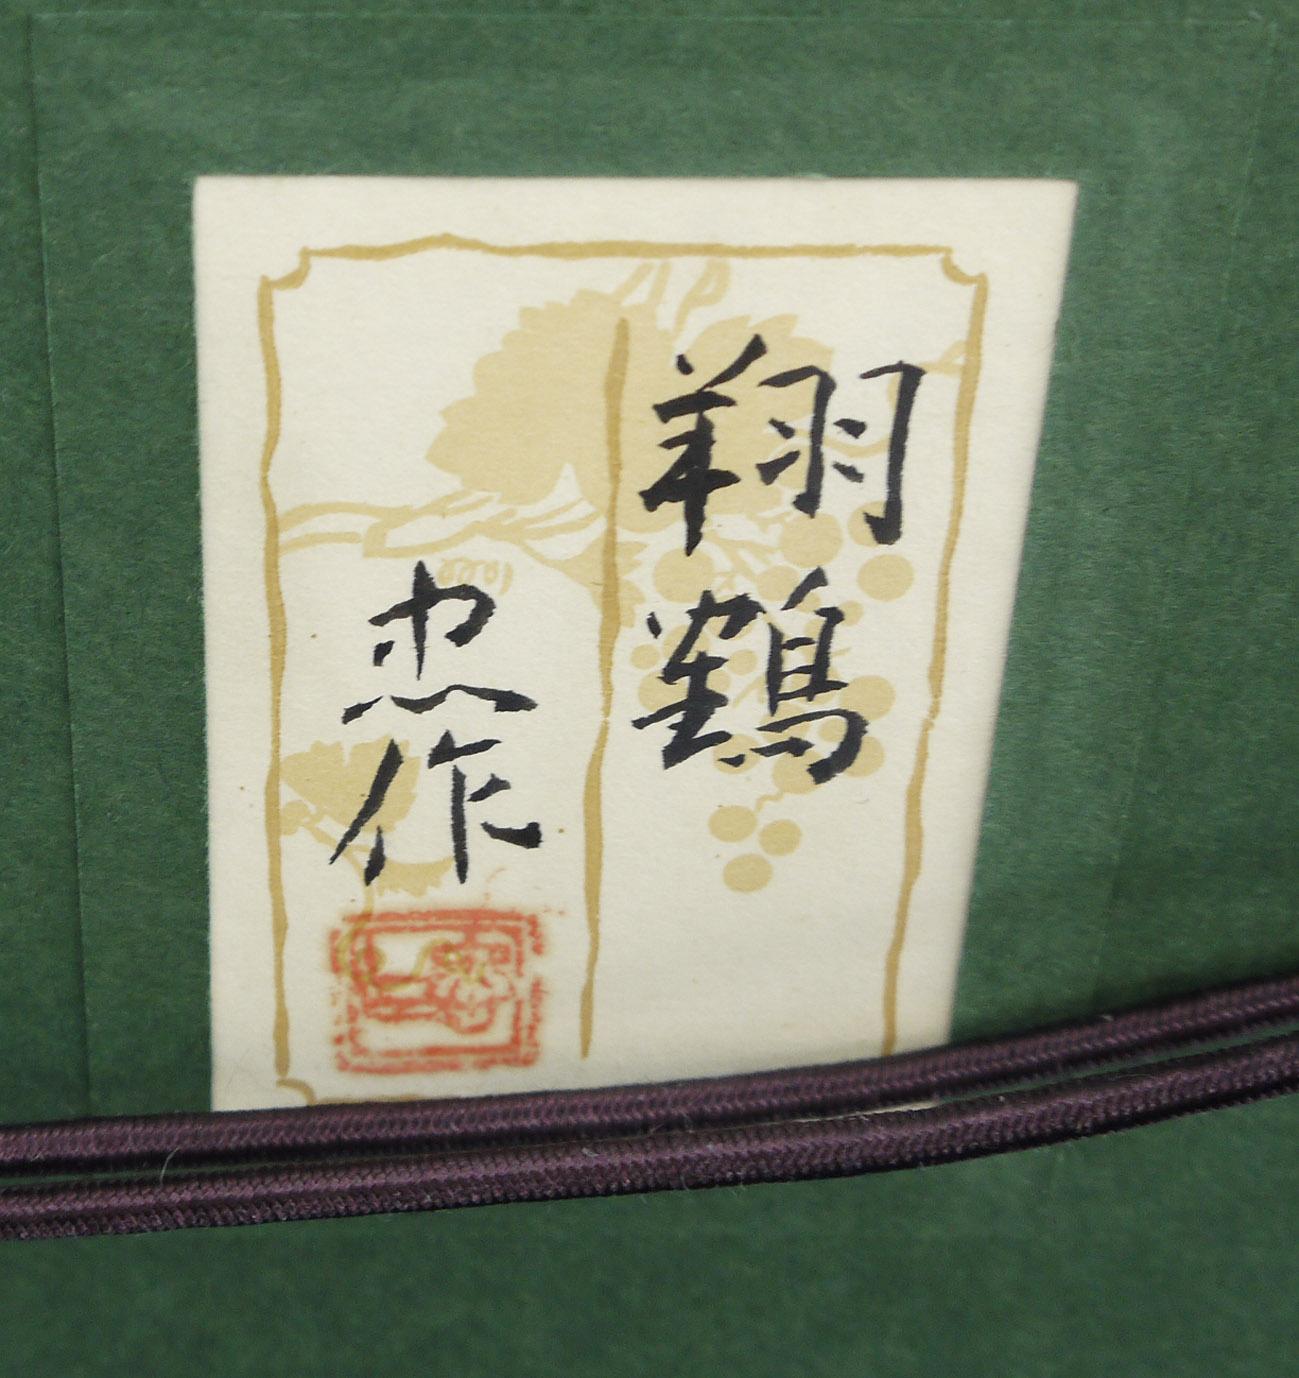 翔鶴
忠作